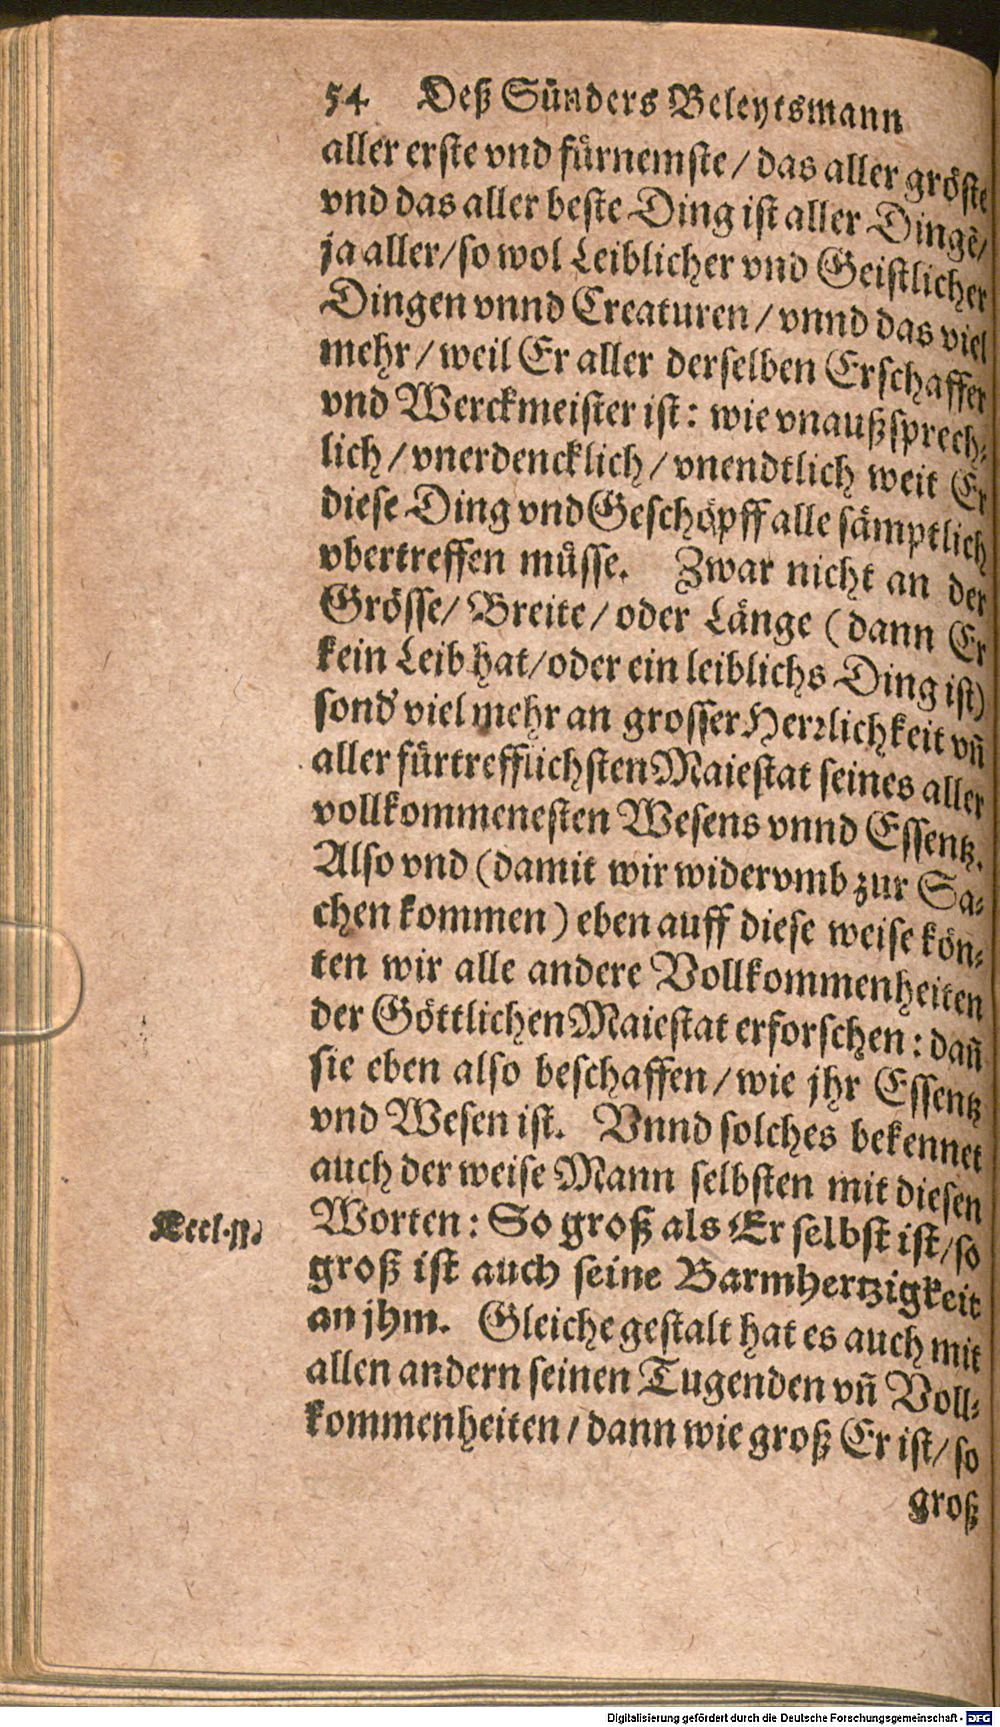 54 Deß Sünders Beleytsmann
aller erste vnd fürnemste / das aller gröste
vnd das aller beste Ding ist aller Dinge /
ja aller / so wol Leiblicher vnd Geistlicher
Dingen vnnd Creaturen / vnnd das viel
mehr / weil Er aller derselben Erschaffer
vnd Werckmeister ist: wie vnaußsprech-
lich / vnerdencklich / vnendtlich weit Er
diese Ding vnd Geschöpff alle sämptlich
vbertreffen müsse. Zwar nicht an der
Grösse / Breite / oder Länge (dann Er
kein Leib hat / oder ein leiblichs Ding ist)
sond' viel mehr an grosser Herrlichkeit vñ
aller fürtrefflichsten Maiestat seines aller
vollkommenesten Wesens vnnd Essentz.
Also vnd (damit wir widervmb zur Sa-
chen kommen) eben auff diese weise kön-
ten wir alle andere Vollkommenheiten
der Göttlichen Maiestat erforschen: dañ
sie eben also beschaffen / wie jhr Essentz
vnd Wesen ist. Vnnd solches bekennet
auch der weise Mann selbsten mit diesen
Worten: So groß als Er selbst ist / so
groß ist auch seine Barmhertzigkeit
an jhm. Gleiche gestalt hat es auch mit
allen andern seinen Tugenden vñ Voll-
kommenheiten / dann wie groß Er ist / so
groß
Digitalisierung gefördert durch die Deutsche Forschungsgemeinschaft - DFG